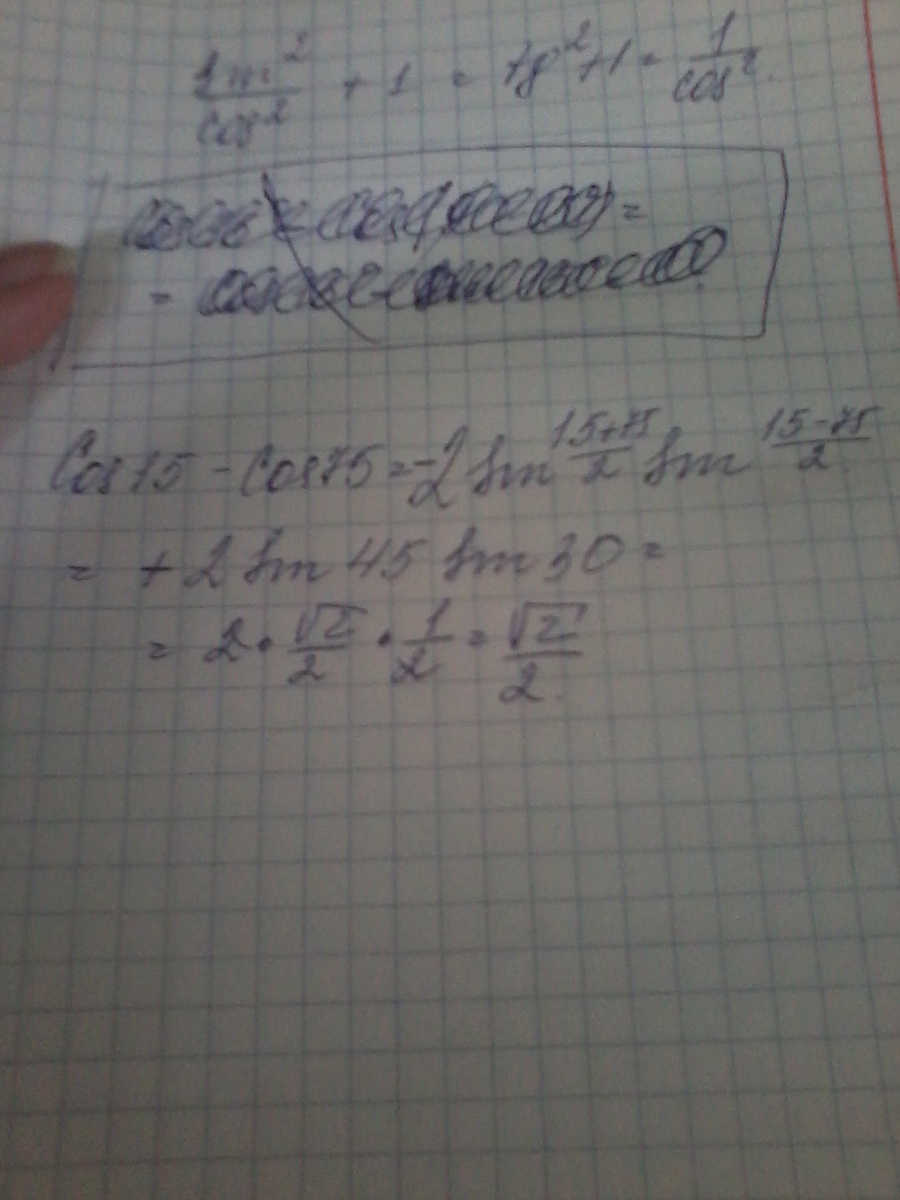 sin²/cos² + 1 = tg² + 1 = 1/cos²
Cos15 - Cos75 = -2 sin (15+75)/2 sin (15-75)/2
= + 2 sin 45 sin 30 =
= 2 · √2/2 · 1/2 = √2/2.